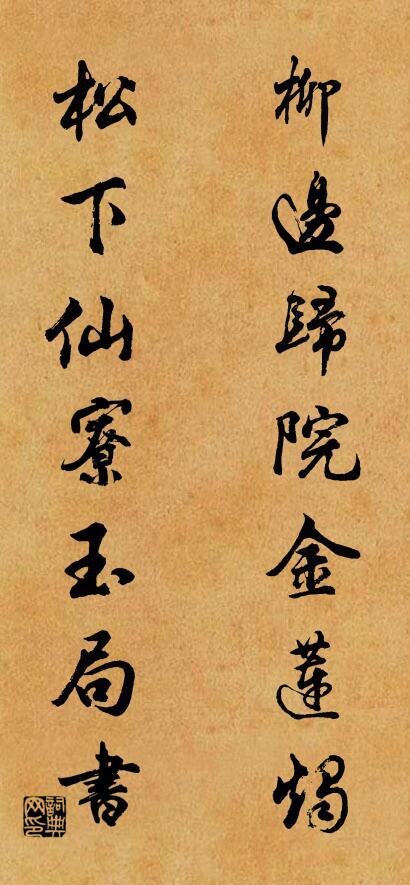 柳邊歸院金蓮燭
松下仙寮玉局書
詞典网印